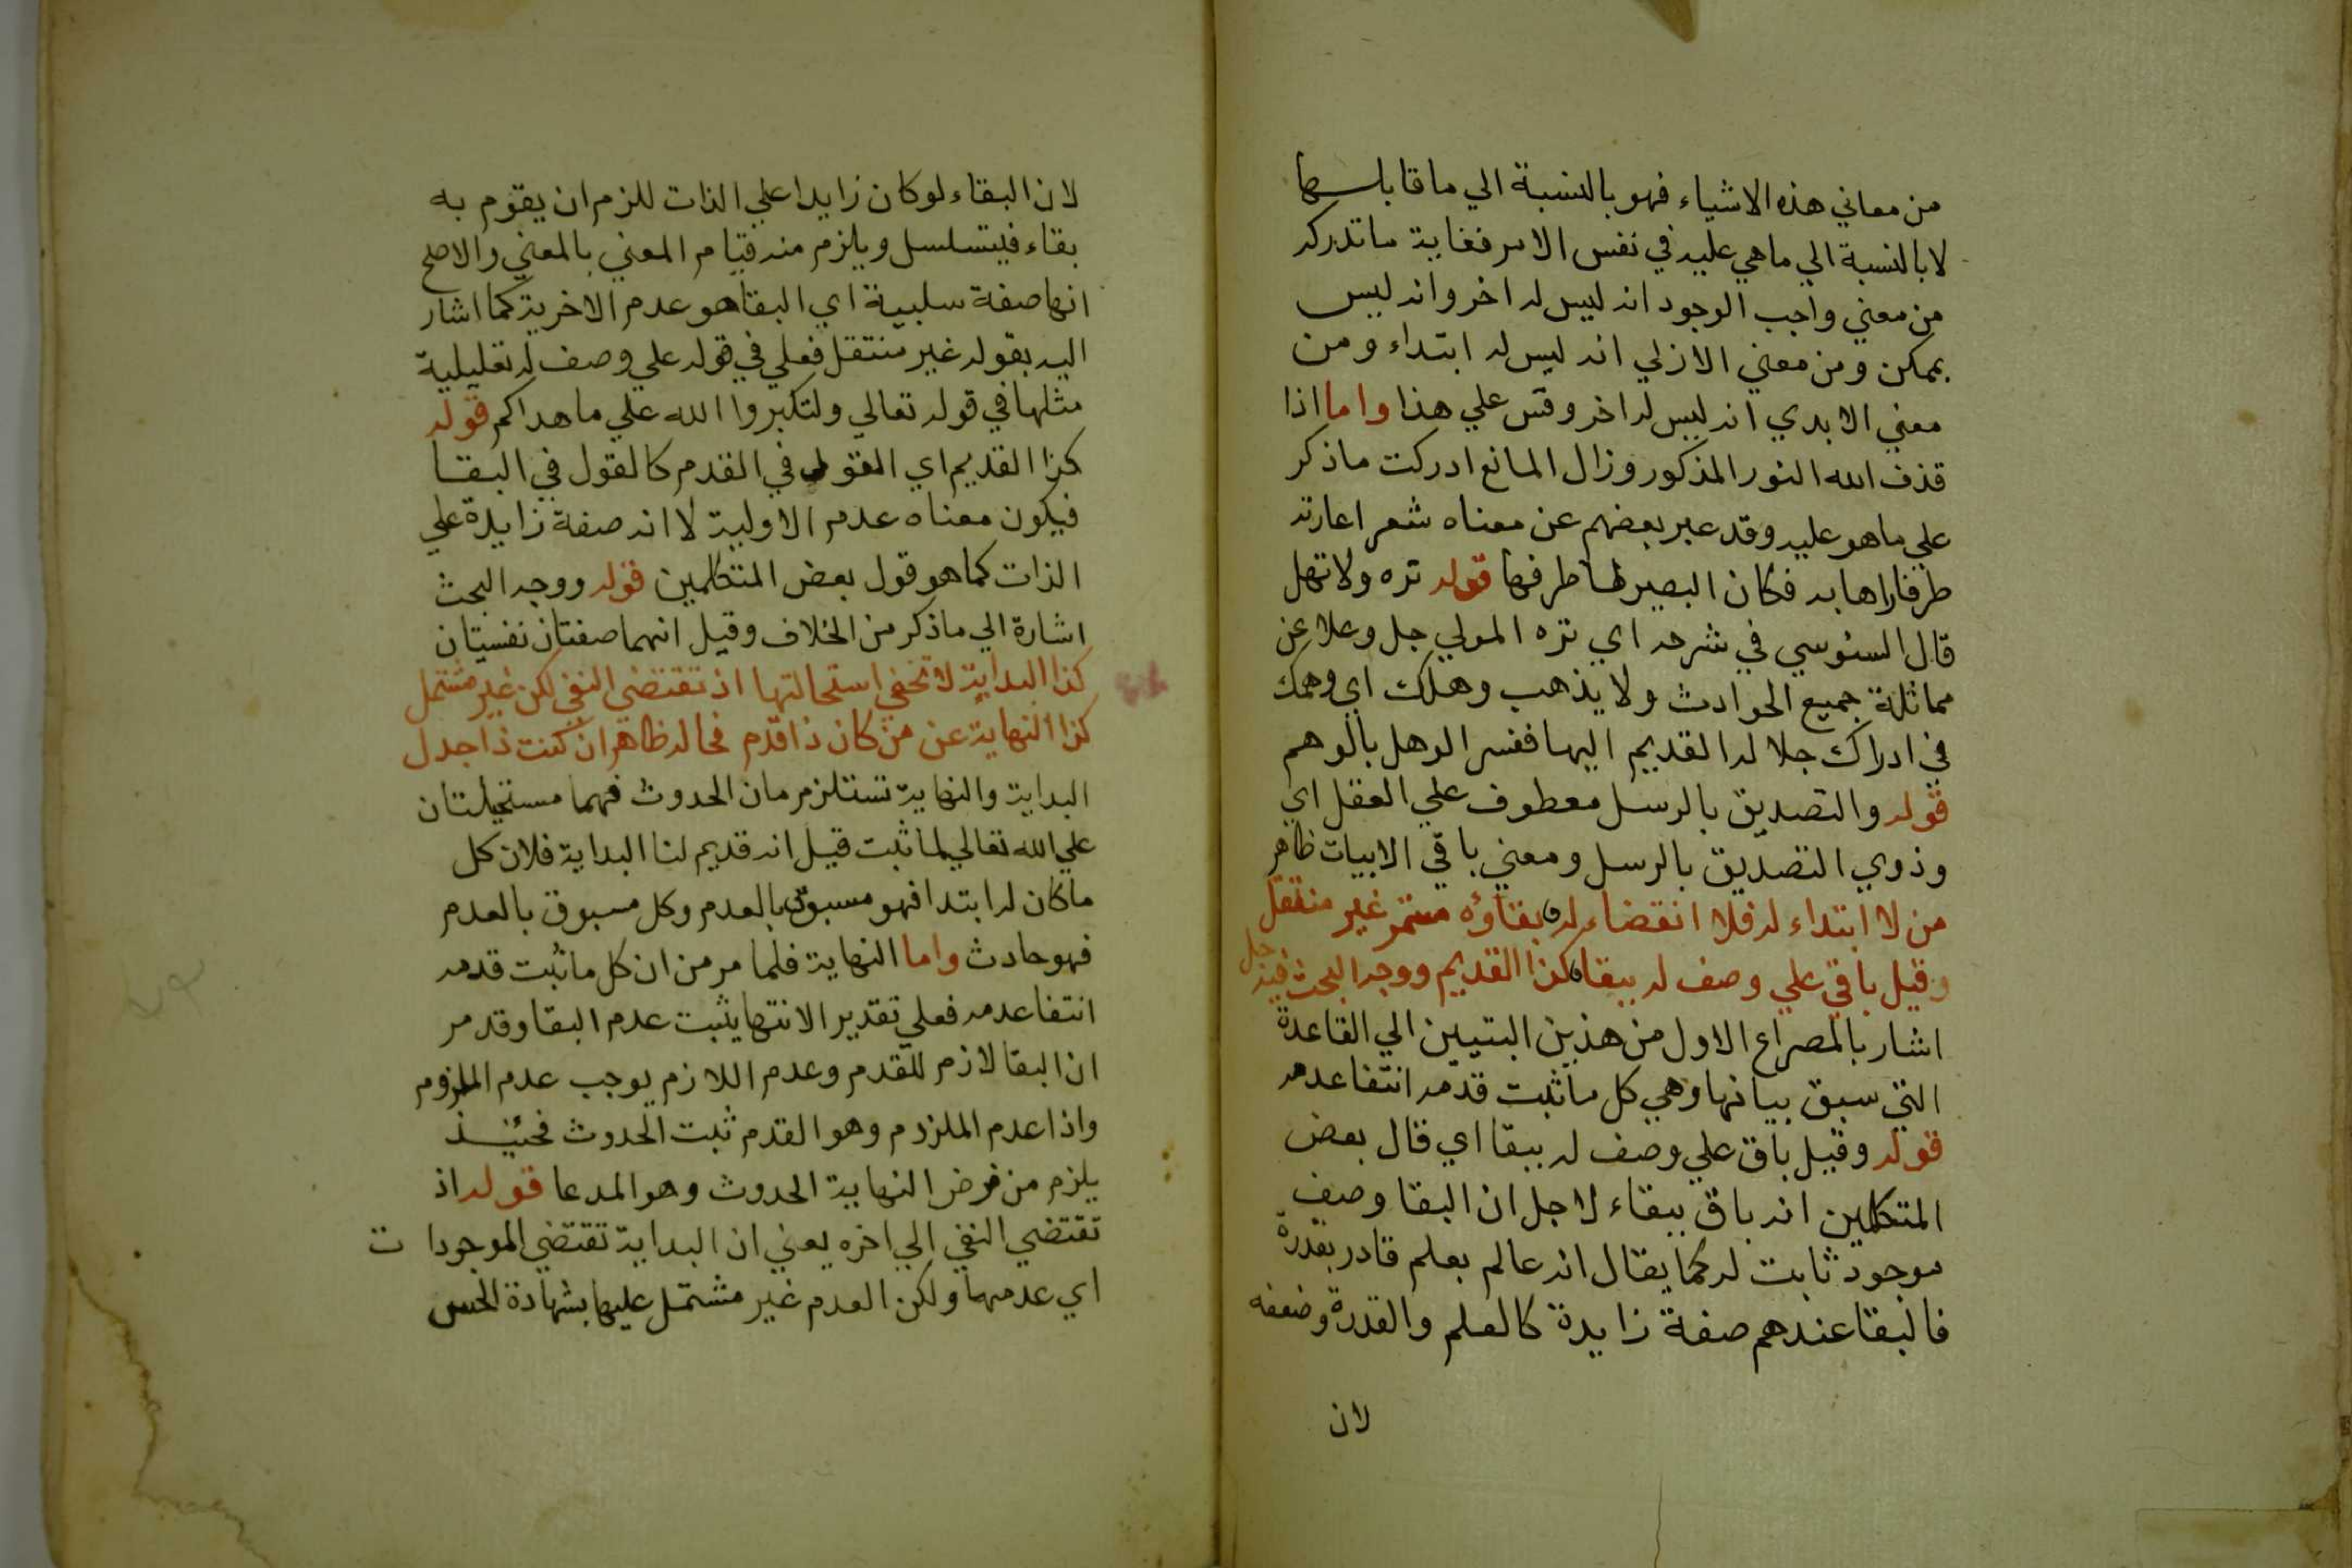 من معاني هذه الاشياء فهو بالنسبة الي ما قابلها
لا بالنسبة الي ما هي عليه في نفس الامر فغاية ما تدركه
من معني واجب الوجود انه ليس له اخر وانه ليس
بممكن ومن معني الازلي انه ليس له ابتداء ومن
معني الابدي انه ليس له اخر وقس علي هذا واما اذا
قذف الله النور المذكور وزال المانع ادركت ما ذكر
علي ما هو عليه وقد عبر بعضهم عن معناه شعر اعارته
طرفا راها به فكان البصير لها طرفها قوله نزه ولا تهل
قال السنوسي في شرحه اي نزه المولي جل وعلا عن
مماثلة جميع الحوادث ولا يذهب وهلك اي وهمك
في ادراك جلاله القديم اليها ففسر الوهل بالوهم
قوله والتصديق بالرسل معطوف علي العقل اي
وذوي التصديق بالرسل ومعني باقي الابيات ظاهر
من لا ابتداء له فلا انقضاء له بقاؤه مستمر غير منتقل
وقيل باقي علي وصف له ببقا كذا القديم ووجه البحث فيه جل
اشار بالمصراع الاول من هذين البتيين الي القاعدة
التي سبق بيانها وهي كل ما ثبت قدمه انتفا عدمه
قوله وقيل باق علي وصف له ببقا اي قال بعض
المتكلمين انه باق ببقاء لاجل ان البقا وصف
موجود ثابت له كما يقال انه عالم بعلم قادر بقدرة
فالبقا عندهم صفة زايدة كالعلم والقدرة وضعفه
لان
لان البقاء لو كان زايدا علي الذات للزم ان يقوم به
بقاء فيتسلسل ويلزم منه قيام المعني بالمعني والاصح
انها صفة سلبية اي البقا هو عدم الاخرية كما اشار
اليه بقوله غير منتقل فعلي في قوله علي وصف له تعليلية
مثلها في قوله تعالي ولتكبروا الله علي ما هداكم قوله
كذا القديم اي القول في القدم كالقول في البقا
فيكون معناه عدم الاولية لا انه صفة زايدة علي
الذات كما هو قول بعض المتكلمين قوله ووجه البحث
اشارة الي ما ذكر من الخلاف وقيل انهما صفتان نفسيتان
كذا البداية لا تخفي استحالتها اذ تقتضي النفي لكن غير مشتمل
كذا النهاية عن من كان ذا قدم فحاله ظاهر ان كنت ذا جدل
البداية والنهاية تستلزمان الحدوث فهما مستحيلتان
علي الله تعالي لما ثبت قيل انه قديم لنا البداية فلان كل
ما كان له ابتدا فهو مسبوق بالعدم وكل مسبوق بالعدم
فهو حادث واما النهاية فلما مر من ان كل ما ثبت قدمه
انتفا عدمه فعلي تقدير الانتها يثبت عدم البقا وقد مر
ان البقا لازم للقدم وعدم اللازم يوجب عدم الملزوم
واذا عدم الملزوم وهو القدم ثبت الحدوث فحينئذ
يلزم من فرض النهاية الحدوث وهو المدعا قوله اذ
تقتضي النفي الي اخره يعني ان البداية تقتضي الموجودات
اي عدمها ولكن العدم غير مشتمل عليها بشهادة الحس